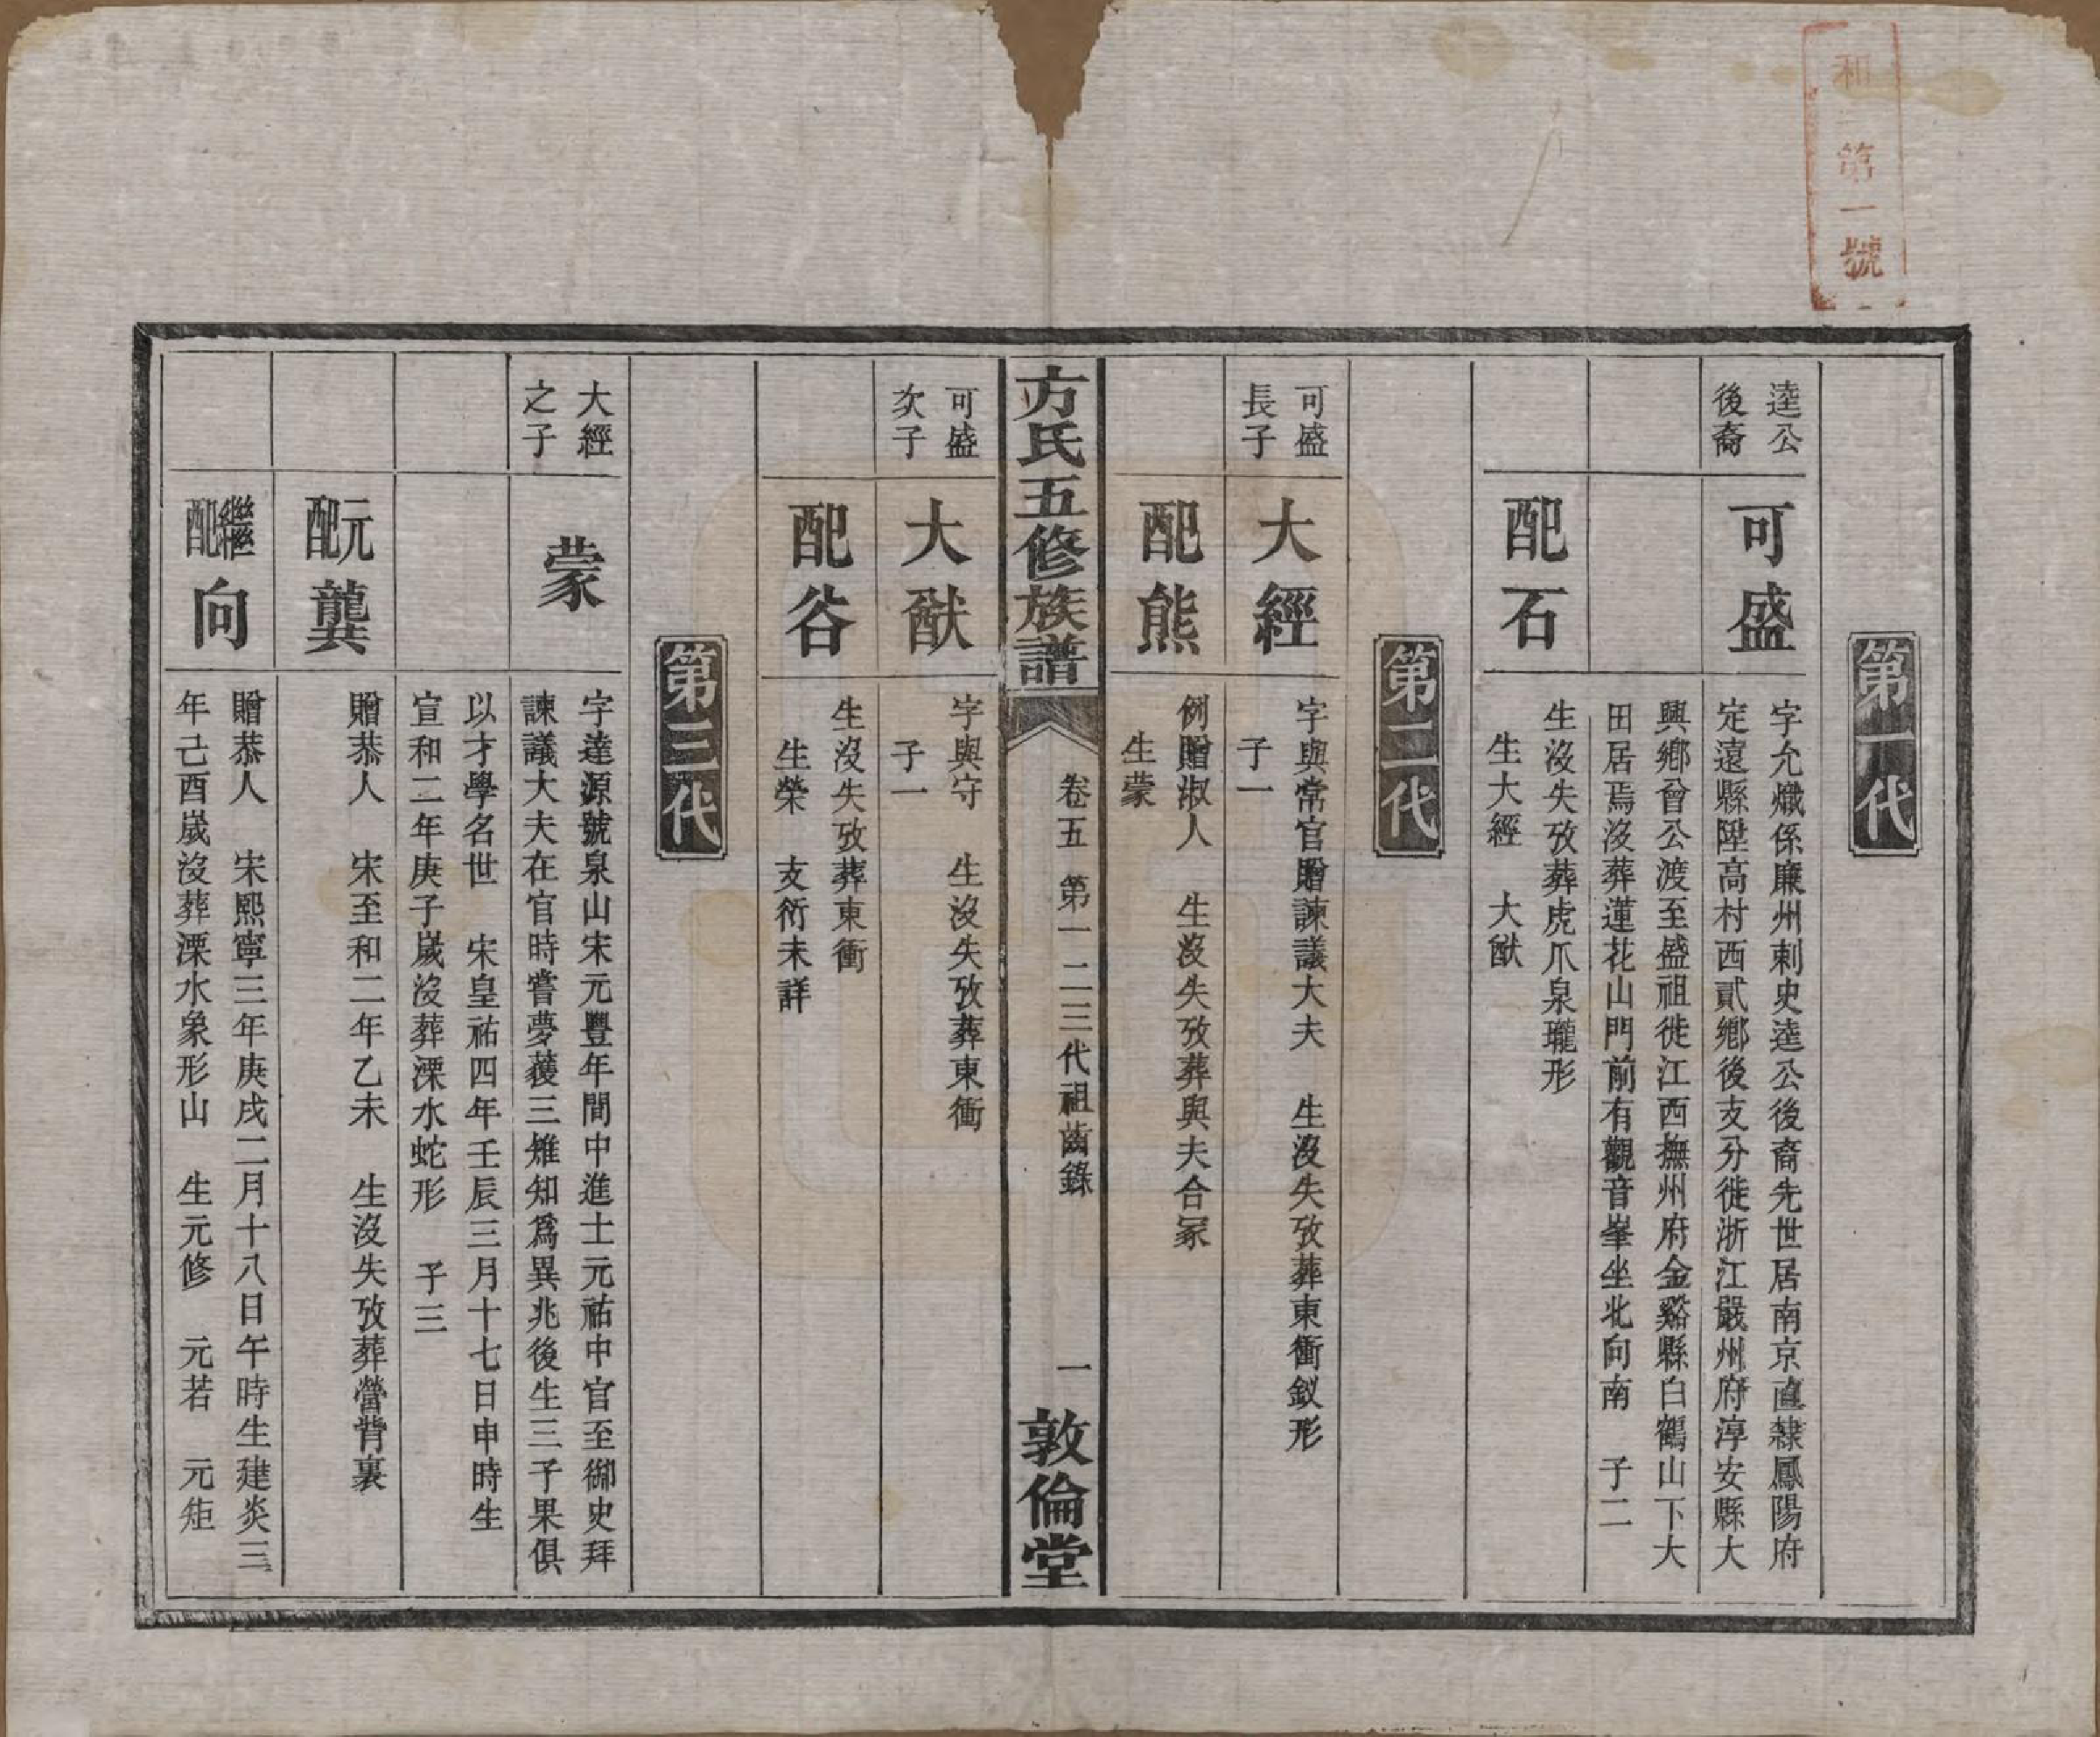 和
第一號
第一代
逵公
後裔
可盛
字允熾係廉州刺史逵公後裔先世居南京直隸鳳陽府
定遠縣陞高村西貳鄉後支分徙浙江嚴州府淳安縣大
興鄉曾公渡至盛祖徙江西撫州府金谿縣白鶴山下大
田居焉沒葬蓮花山門前有觀音峯坐北向南　子二
配石
生沒失攷葬虎爪泉瓏形
生大經　大猷
第二代
可盛
長子
大經
字與常官贈諫議大夫　生沒失攷葬東衝釵形
子一
配熊
例贈淑人　生沒失攷葬與夫合冢
生蒙
方氏五修族譜
卷五　第一二三代祖齒錄
一
敦倫堂
可盛
次子
大猷
字與守　生沒失攷葬東衝
子一
配谷
生沒失攷葬東衝
生榮　支衍未詳
第三代
大經
之子
蒙
字達源號泉山宋元豐年間中進士元祐中官至御史拜
諫議大夫在官時嘗夢薐三雉知爲異兆後生三子果俱
以才學名世　宋皇祐四年壬辰三月十七日申時生
宣和二年庚子歲沒葬溧水蛇形　子三
元配龔
贈恭人　宋至和二年乙未　生沒失攷葬營背裏
繼配向
贈恭人　宋熙寧三年庚戌二月十八日午時生建炎三
年己酉歲沒葬溧水象形山　生元修　元若　元矩